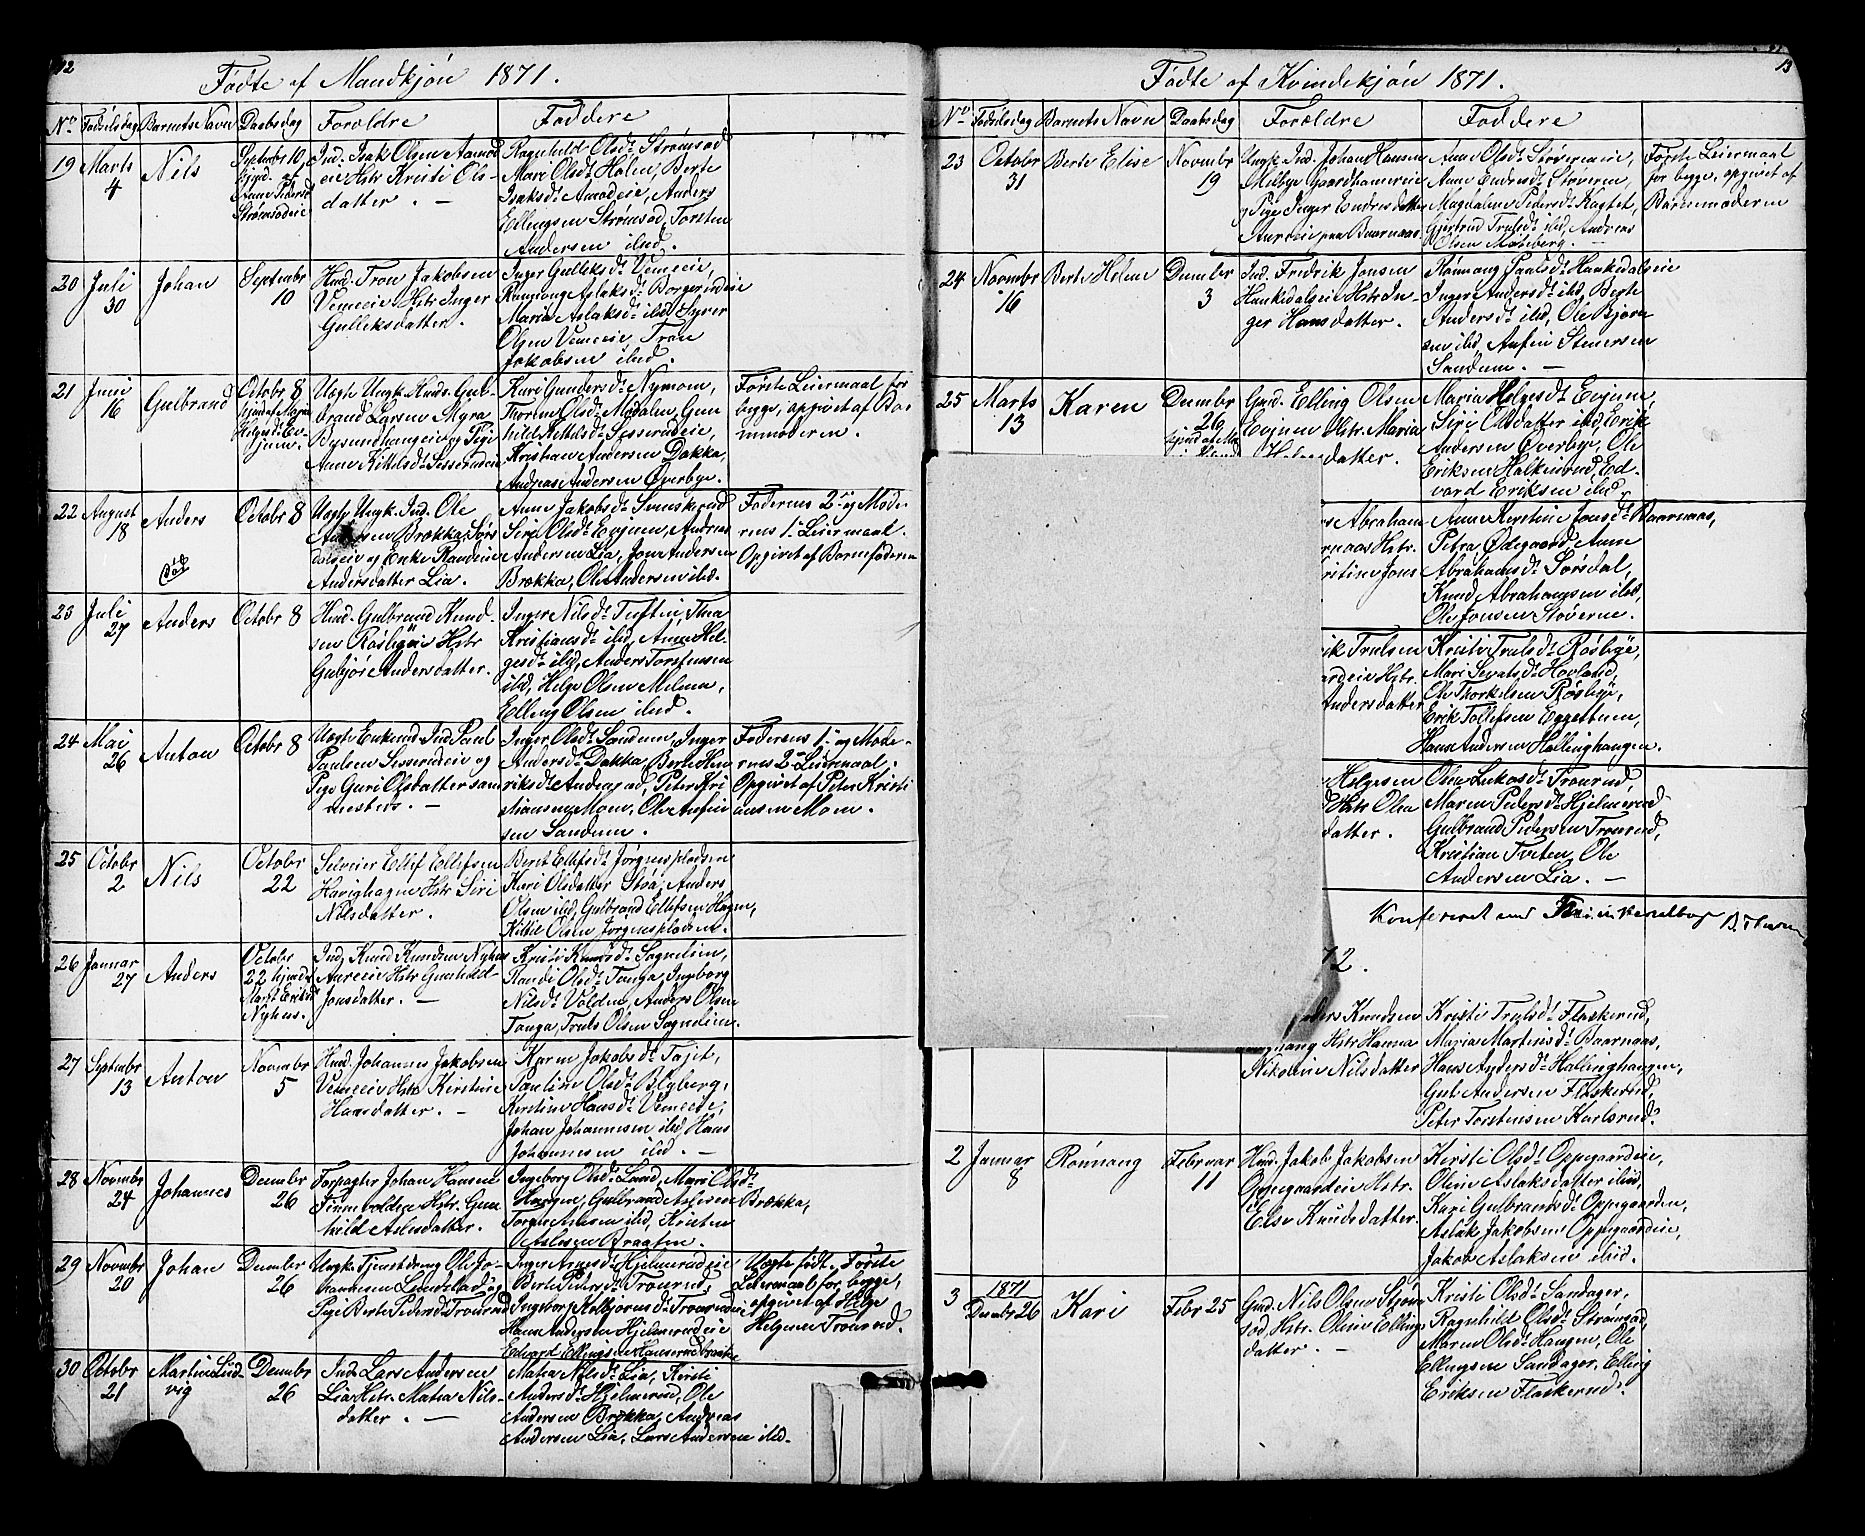 12
Fødte af Mandkjön 1871.
No Födselsdag Barnets Navn Daabsdag Forældre Faddere
19 Marts 4 Nils
Septembr 10,
Strömsödeie
Ind. Isak Olsen Aamod
eie Hstr Kristi Ols-
datter. —
Ragnhild Olsdr Strömsöd
Mari Olsdr Holen, Berte
Isaksdr Aamodeie, Anders
Ellingsen Strömsöd, Torsten
Andersen ibid.
20 Juli 30 Johan
Septembr 10
Husd. Tron Jakobsen
Vemeeie Hstr Inger
Gulleksdatter.
Inger Gulleksdr Vemeeie,
Rannong Aslaksdr Borgerudeie
Maria Aslaksdr ibid, Syver
Olsen Vemeeie, Tron
Jakobsen ibid.
21 Juni 16 Gulbrand
Octobr 8
Uægte Ungk. Husd. Gul-
brand Larsen Myra
og Pige
Anne Kittelsdr Sesserudeie
Kari Gundersdr Nymoen,
Thorten Olsdr Modalen, Gun
hild Kittelsdr Sesserudeie,
Kristian Andersen Dokka,
Andreas Andersen Överbye.
Første Leiermaal for
begge, opgivet af Bar
nemoderen.
22 August 18 Anders
död
Octobr 8
Uægte Ungk. Ind. Ole
Andersen Brækka Sörs
dalseie og Enke Randine
Andersdatter Lia.
Anne Jakobsdr Svenskerud
Siri Olsdr Evjuen, Andreas
Andersen Lia, Jon Andersen
Brækka, Ole Andersen ibid.
Faderens 2det og Mode
rens 1ste Leiermaal.
Opgivet af Barnefaderen
23 Juli 27 Anders
Octobr 8
Husd. Gulbrand Knud-
sen Röslyeie Hstr
Gubjör Andersdatter.
Inger Nilsdr Tuftin, Thea
Kristiansdr ibid, Anne Hel-
gesdr ibid, Anders Torstensen
ibid, Helge Olsen Melina,
Elling Olsen ibid.
24 Mai 26 Anton
Octobr 8
Uægte Enkemd Ind Paul
Paulsen Sesserudeie og
Pige Guri Olsdatter sam
mesteds. —
Inger Olsdr Sandum, Inger
Andersdr Dokka, Berte Hen
riksdr Andersrud, Peter Kri
stiansen Moen, Ole Anfin
sen Sandum.
Faderens 1ste og Mode-
rens 2det Leiermaal.
Opgivet af Peter Kristi
ansen Moen.
25 Octobr 2 Nils
Octobr 22
Selveier Ellif Ellefsen
Havighagen Hstr Siri
Nilsdatter.
Beret Ellefsdr Jörgenspladsen
Kari Olsdatter Stöa, Anders
Olsen ibid, Gulbrand Ellefsen Hagen,
Kittil Olsen Jörgensplads.
26 Januar 27 Anders
Octobr 22
Nyhus.
Ind Knud Knudsen Nyhus
Aureeie Hstr Gunhild
Jonsdatter. —
Kristi Knudsdr Sognelien,
Randi Olsdr Tonga, Ingeborg
Nilsdr Volden, Anders Olsen
Tonga, Truls Olsen Sognelien.
27 Septembr 13 Anton
Novembr 5
Husd. Johannes Jakobsen
Vemeeie Hstr Kirstine
Hansdatter. —
Karen Jakobsdr Tajet,
Pauline Olsdr Blyberg,
Kerstine Hansdr Vemeeie,
Johan Johannesen ibid Hans
Johannesen ibid. —
28 Novembr 24 Johannes
Decembr 26
Forpagter Johan Hansen
Finnevolden Hstr. Gun
hild Aslesdatter.
Ingeborg Olsdr Lund, Mari Olsdr
Haugen, Gulbrand Aslesen Brække,
Torger Aslesen ibid, Kristen
Aslesen Braaten.
29 Novembr 20 Johan
Decembr 26
Ungk. Tjenestdreng Ole Jo-
hannesen Lundstad og
Pige Berte Pedersdr Tronrud
Inger Arnesdr Hjelmerudeie
Berte Pedersdr Tronrud,
Ingeborg Kolbjörnsdr Tronrud
Hans Andersen Hjelmerudeie
Edvard Ellingsen
Uægte födt. Første
Leiermaal for begge,
opgivet af Helge
Helgesen Tronrud.
30 Octobr 21 Martin Lud-
vig
Decembr 26
Ind. Lars Andersen
Lia Hstr Matea Nils-
datter. —
Matea Nilsdr Lia, Kirsti
Andersdr Hjelmerud, Ole
Andersen Brække, Andreas
Andersen Lia, Lars Andersen ibid.
13
Födte af Kvindekjön 1871.
No Födselsdag Barnets Navn Daabsdag Forældre Faddere
23 Octobr 31 Berte Elise
Novembr 19
Ungk. Ind. Johan Hansen
Melbye Gaardhammereie
og Pige Inger Endresdatter
Aureeie paa Baarnaas.
Anne Olsdr Störerneie,
Anne Endresdr Stöveren,
Magdalene Pedersdr Kagtet,
Gjertrud Trulsdr ibid, Andreas
Olsen Moleberg. —
Første Leiermaal
for begge, opgivet af
Barnemoderen
24 Novembr 16 Berte Helene
Decembr 3
Ind. Fredrik Jonsen
Haukedalseie Hstr In-
ger Hansdatter.
Rönnong Paulsdr Haukedalseie
Inger Andersdr ibid, Berte
Andersdr ibid, Ole Björn
sen ibid, Anfin Stenersen
Sandum. —
25 Marts 13 Karen
Decembr 26
Gmd. Elling Olsen
Evjuen Hstr. Maria
Helgesdatter.
Maria Helgesdr Evjuen,
Siri Olsdatter ibid, Erik
Andersen Överbye, Ole
Eriksen Halkinrud, Ed-
vard Eriksen ibid.
Abraham
Hstr.
Jons
Anne Kerstine Jonsdr Baarnaas,
Petra Ödegaard, Anne
Abrahamsdr Sörsdal,
Knud Abrahamsen ibid,
Ole Jonsen Stöverne.
Trulsen
Hstr.
Andersdatter
Kristi Trulsdr Röslye,
Mari Sevatsdr Hovland,
Ole Thorkelsen Röslye,
Erik Tollefsen Eggettuen,
Hans Andersen Hallinghaugen.
Helgesen
Hstr Olea
datter.
Olea Lukasdr Tronrud,
Maren Pedersdr Hjelmerud
Gulbrand Pedersen Tronrud,
Kristian Tveten, Ole
Andersen Lia. —
Konfereret med
72.
Knudsen
Hstr Hanna
Nikoline Nilsdatter
Kristi Trulsdr Flaskerud,
Maria Martinsdr Baarnaas,
Hans Andersdr Hallinghaugen,
Gul. Andersen Flaskerud,
Peter Torstensen Karlsrud.
2 Januar 8 Rönnong
Februar 11
Husd. Jakob Jakobsen
Oppegaardeie Hstr.
Else Knudsdatter.
Kirsti Olsdr Oppegaardeie,
Oline Aslaksdatter ibid,
Kari Gulbrandsdr Oppegaarden,
Aslak Jakobsen Oppegaardeie,
Jakob Aslaksen ibid.
3 1871
Decembr 26 Kari
Febr 25
Gmd. Nils Olsen Ström
söd, Hstr. Oline Ellings
datter. —
Kristi Olsdr Sandager,
Ragnhild Olsdr Strömsöd,
Maren Olsdr Haugen, Ole
Ellingsen Sandager, Elling
Eriksen Flaskerud.